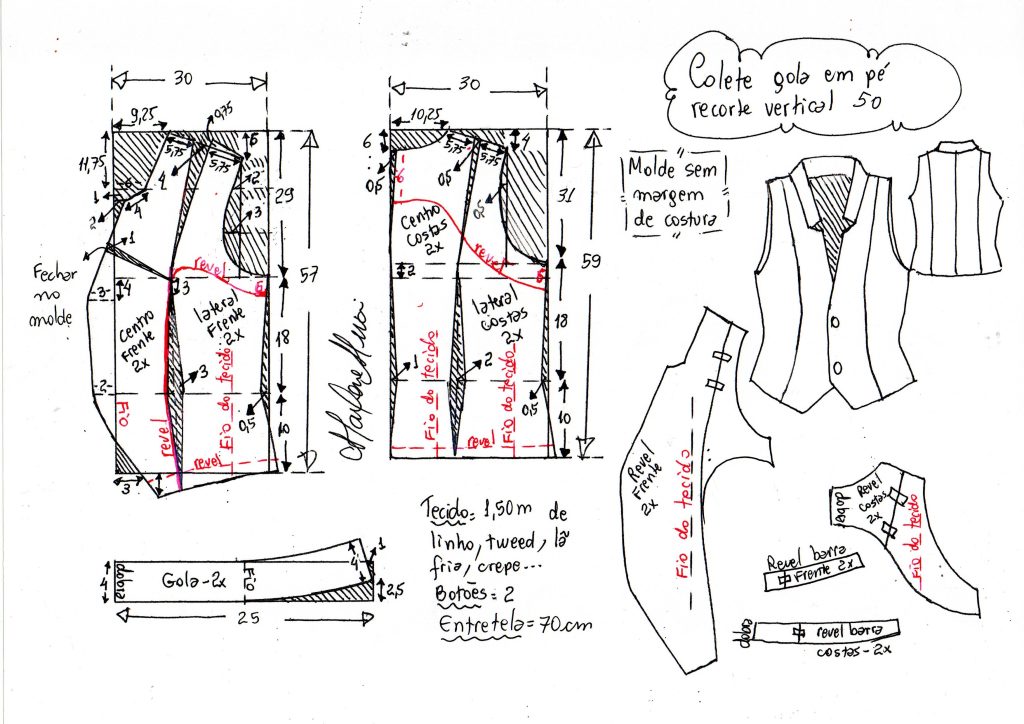 Colete gola em pé
recorte vertical 50
Molde sem
margem
de costura
30
9,25
0,75
11,75
5,75
5,75
6
1
6
4
2
2
3
29
1
Fechar
no
molde
3
4
3
revel
6
57
Centro
Frente
2x
lateral
Frente
2x
18
2
3
0,5
Fio
revel
Fio do tecido
revel
10
3
30
10,25
6
5,75
5,75
4
0,5
6
0,5
31
Centro
Costas
2x
revel
6
2
59
lateral
costas
2x
18
1
2
0,5
Fio do tecido
Fio do tecido
revel
10
Marlene Mukai
dobra
4
Gola-2x
Fio
4
1
2,5
25
Tecido= 1,50m de
linho, tweed, lã
fria, crepe...
Botões= 2
Entretela=70cm
Revel
Frente
2x
Fio do tecido
dobra
Revel
costas
2x
Fio do tecido
Revel barra
Frente 2x
dobra
revel barra
costas-2x